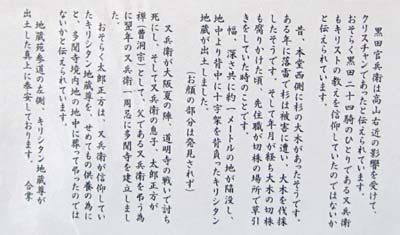 黒田官兵衛は高山右近の影響を受けて、
クリスチャンであったと伝えられています。
おそらく黒田二十四騎のひとりである又兵衛
もキリストの教えを信仰していたのではないか
と伝えられています。
昔、本堂西側に杉の大木があったそうです。
ある年に落雷で杉は被害に遭い、大木を伐採
したそうです。そして年月が経ち大木の切株
も腐りかけた頃、先住職が切株の場所で草引
きをしていた時のことです。
幅、深さ共に約一メートルの地が陥没し、
地中より背中に十字架を背負ったキリシタン
地蔵が出土しました。
(お顔の部分は発見されず)
又兵衛が大阪夏の陣、道明寺の戦いで討ち
死にし、そして又兵衛の息子、太郎正方が
禅(曹洞宗)として、父である又兵衛を弔う為
に翌年の又兵衛一周忌に多聞寺を建立しまし
た。
おそらく太郎正方は、又兵衛が信仰してい
たキリシタン地蔵尊を、せめてもの供養の為に
と、多聞寺境内地の地中に葬って弔ったのでは
ないかと伝えられています。
地蔵苑参道の左側、キリシタン地蔵尊が
出土した真上に奉安しております。 合掌